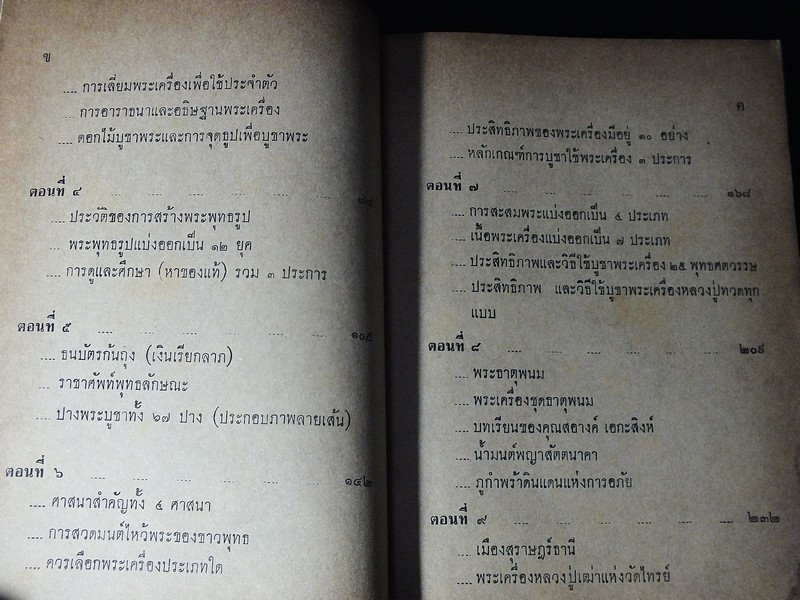 ข
.... การเลี่ยมพระเครื่องเพื่อใช้ประจำตัว
.... การอาราธนาและอธิษฐานพระเครื่อง
.... ดอกไม้บูชาพระและการจุดธูปเพื่อบูชาพระ
ตอนที่ ๔ .... .... .... .... ....
.... ประวัติของการสร้างพระพุทธรูป
.... พระพุทธรูปแบ่งออกเป็น ๑๒ ยุค
.... การดูและศึกษา (หาของแท้) รวม ๓ ประการ
ตอนที่ ๕ .... .... .... .... .... ๑๐๕
.... ธนบัตรก้นถุง (เงินเรียกลาภ)
.... ราชาศัพท์พุทธลักษณะ
.... ปางพระบูชาทั้ง ๖๗ ปาง (ประกอบภาพลายเส้น)
ตอนที่ ๖ .... .... .... .... .... ๑๔๒
.... ศาสนาสำคัญทั้ง ๕ ศาสนา
.... การสวดมนต์ไหว้พระของชาวพุทธ
.... ควรเลือกพระเครื่องประเภทใด
ค
.... ประสิทธิภาพของพระเครื่องมีอยู่ ๑๐ อย่าง
.... หลักเกณฑ์การบูชาใช้พระเครื่อง ๓ ประการ
ตอนที่ ๗ .... .... .... .... .... ๑๖๘
.... การสะสมพระแบ่งออกเป็น ๕ ประเภท
.... เนื้อพระเครื่องแบ่งออกเป็น ๗ ประเภท
.... ประสิทธิภาพและวิธีใช้บูชาพระเครื่อง ๒๕ พุทธศตวรรษ
.... ประสิทธิภาพ และวิธีใช้บูชาพระเครื่องหลวงปู่ทวดทุก
แบบ
ตอนที่ ๘ .... .... .... .... .... ๒๐๙
.... พระธาตุพนม
.... พระเครื่องชุดธาตุพนม
.... บทเรียนของคุณสอางค์ เอกะสิงห์
.... น้ำมนต์พญาสัตตนาคา
.... ภูกำพร้าดินแดนแห่งการอภัย
ตอนที่ ๙ .... .... .... .... .... ๒๓๒
.... เมืองสุราษฎร์ธานี
.... พระเครื่องหลวงปู่เฒ่าแห่งวัดไทรย์